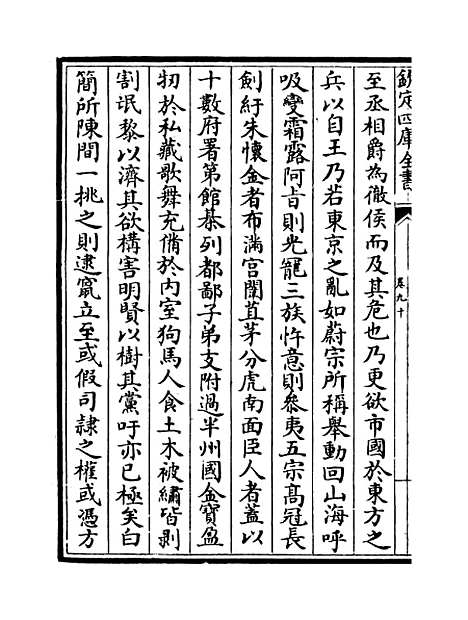 欽定四庫全書
卷九十
至丞相爵為徹侯而及其危也乃更欲市國於東方之
兵以自王乃若東京之亂如蔚宗所稱舉動回山海呼
吸變霜露阿旨則光寵三族忤意則參夷五宗高冠長
劍紆朱懷金者布滿宫闈苴茅分虎南面臣人者蓋以
十數府署第館棊列都鄙子弟支附過半州國金寶盈
牣於私藏歌舞充偹於内室狗馬人食土木被繡皆剥
割氓黎以濟其欲構害明賢以樹其黨吁亦已極矣白
簡所陳間一挑之則逮竄立至或假司隷之權或憑方